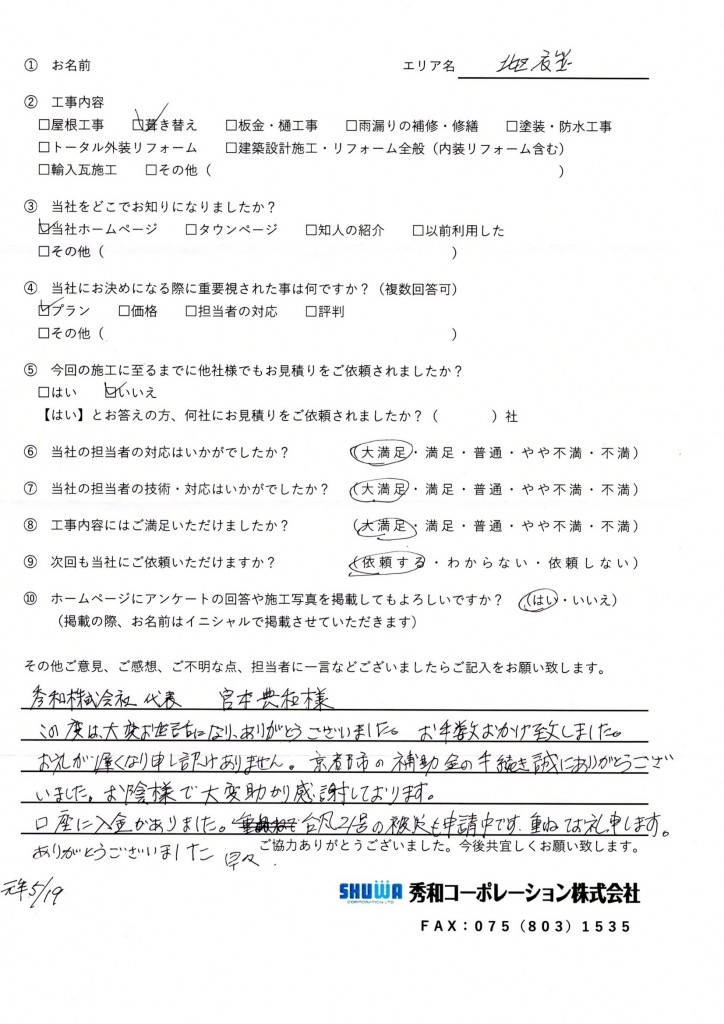 ① お名前 エリア名 北区
② 工事内容
□屋根工事 ☑葺き替え □板金・樋工事 □雨漏りの補修・修繕 □塗装・防水工事
□トータル外装リフォーム □建築設計施工・リフォーム全般（内装リフォーム含む）
□輸入瓦施工 □その他（ ）
③ 当社をどこでお知りになりましたか？
☑当社ホームページ □タウンページ □知人の紹介 □以前利用した
□その他（ ）
④ 当社にお決めになる際に重要視された事は何ですか？（複数回答可）
☑プラン □価格 □担当者の対応 □評判
□その他（ ）
⑤ 今回の施工に至るまでに他社様でもお見積りをご依頼されましたか？
□はい ☑いいえ
【はい】とお答えの方、何社にお見積りをご依頼されましたか？（ ）社
⑥ 当社の担当者の対応はいかがでしたか？ （大満足・満足・普通・やや不満・不満）
⑦ 当社の担当者の技術・対応はいかがでしたか？ （大満足・満足・普通・やや不満・不満）
⑧ 工事内容にはご満足いただけましたか？ （大満足・満足・普通・やや不満・不満）
⑨ 次回も当社にご依頼いただけますか？ （依頼する・わからない・依頼しない）
⑩ ホームページにアンケートの回答や施工写真を掲載してもよろしいですか？ （はい・いいえ）
（掲載の際、お名前はイニシャルで掲載させていただきます）
その他ご意見、ご感想、ご不明な点、担当者に一言などございましたらご記入をお願い致します。
秀和株式会社 代表 宮本典和様
この度は、大変お世話になり、ありがとうございました。お手数おかけ致しました。
お礼が遅くなり申し訳ありません。京都市の補助金の手続き誠にありがとうござ
いました。お陰様で大変助かり感謝しております。
口座に入金がありました。台風21号の被災も申請中です。重ねてお礼申します。
ありがとうございました 早々.
ご協力ありがとうございました。今後共宜しくお願い致します。
元年5/19
SHUWA CORPORATION LTD. 秀和コーポレーション株式会社
FAX：075（803）1535